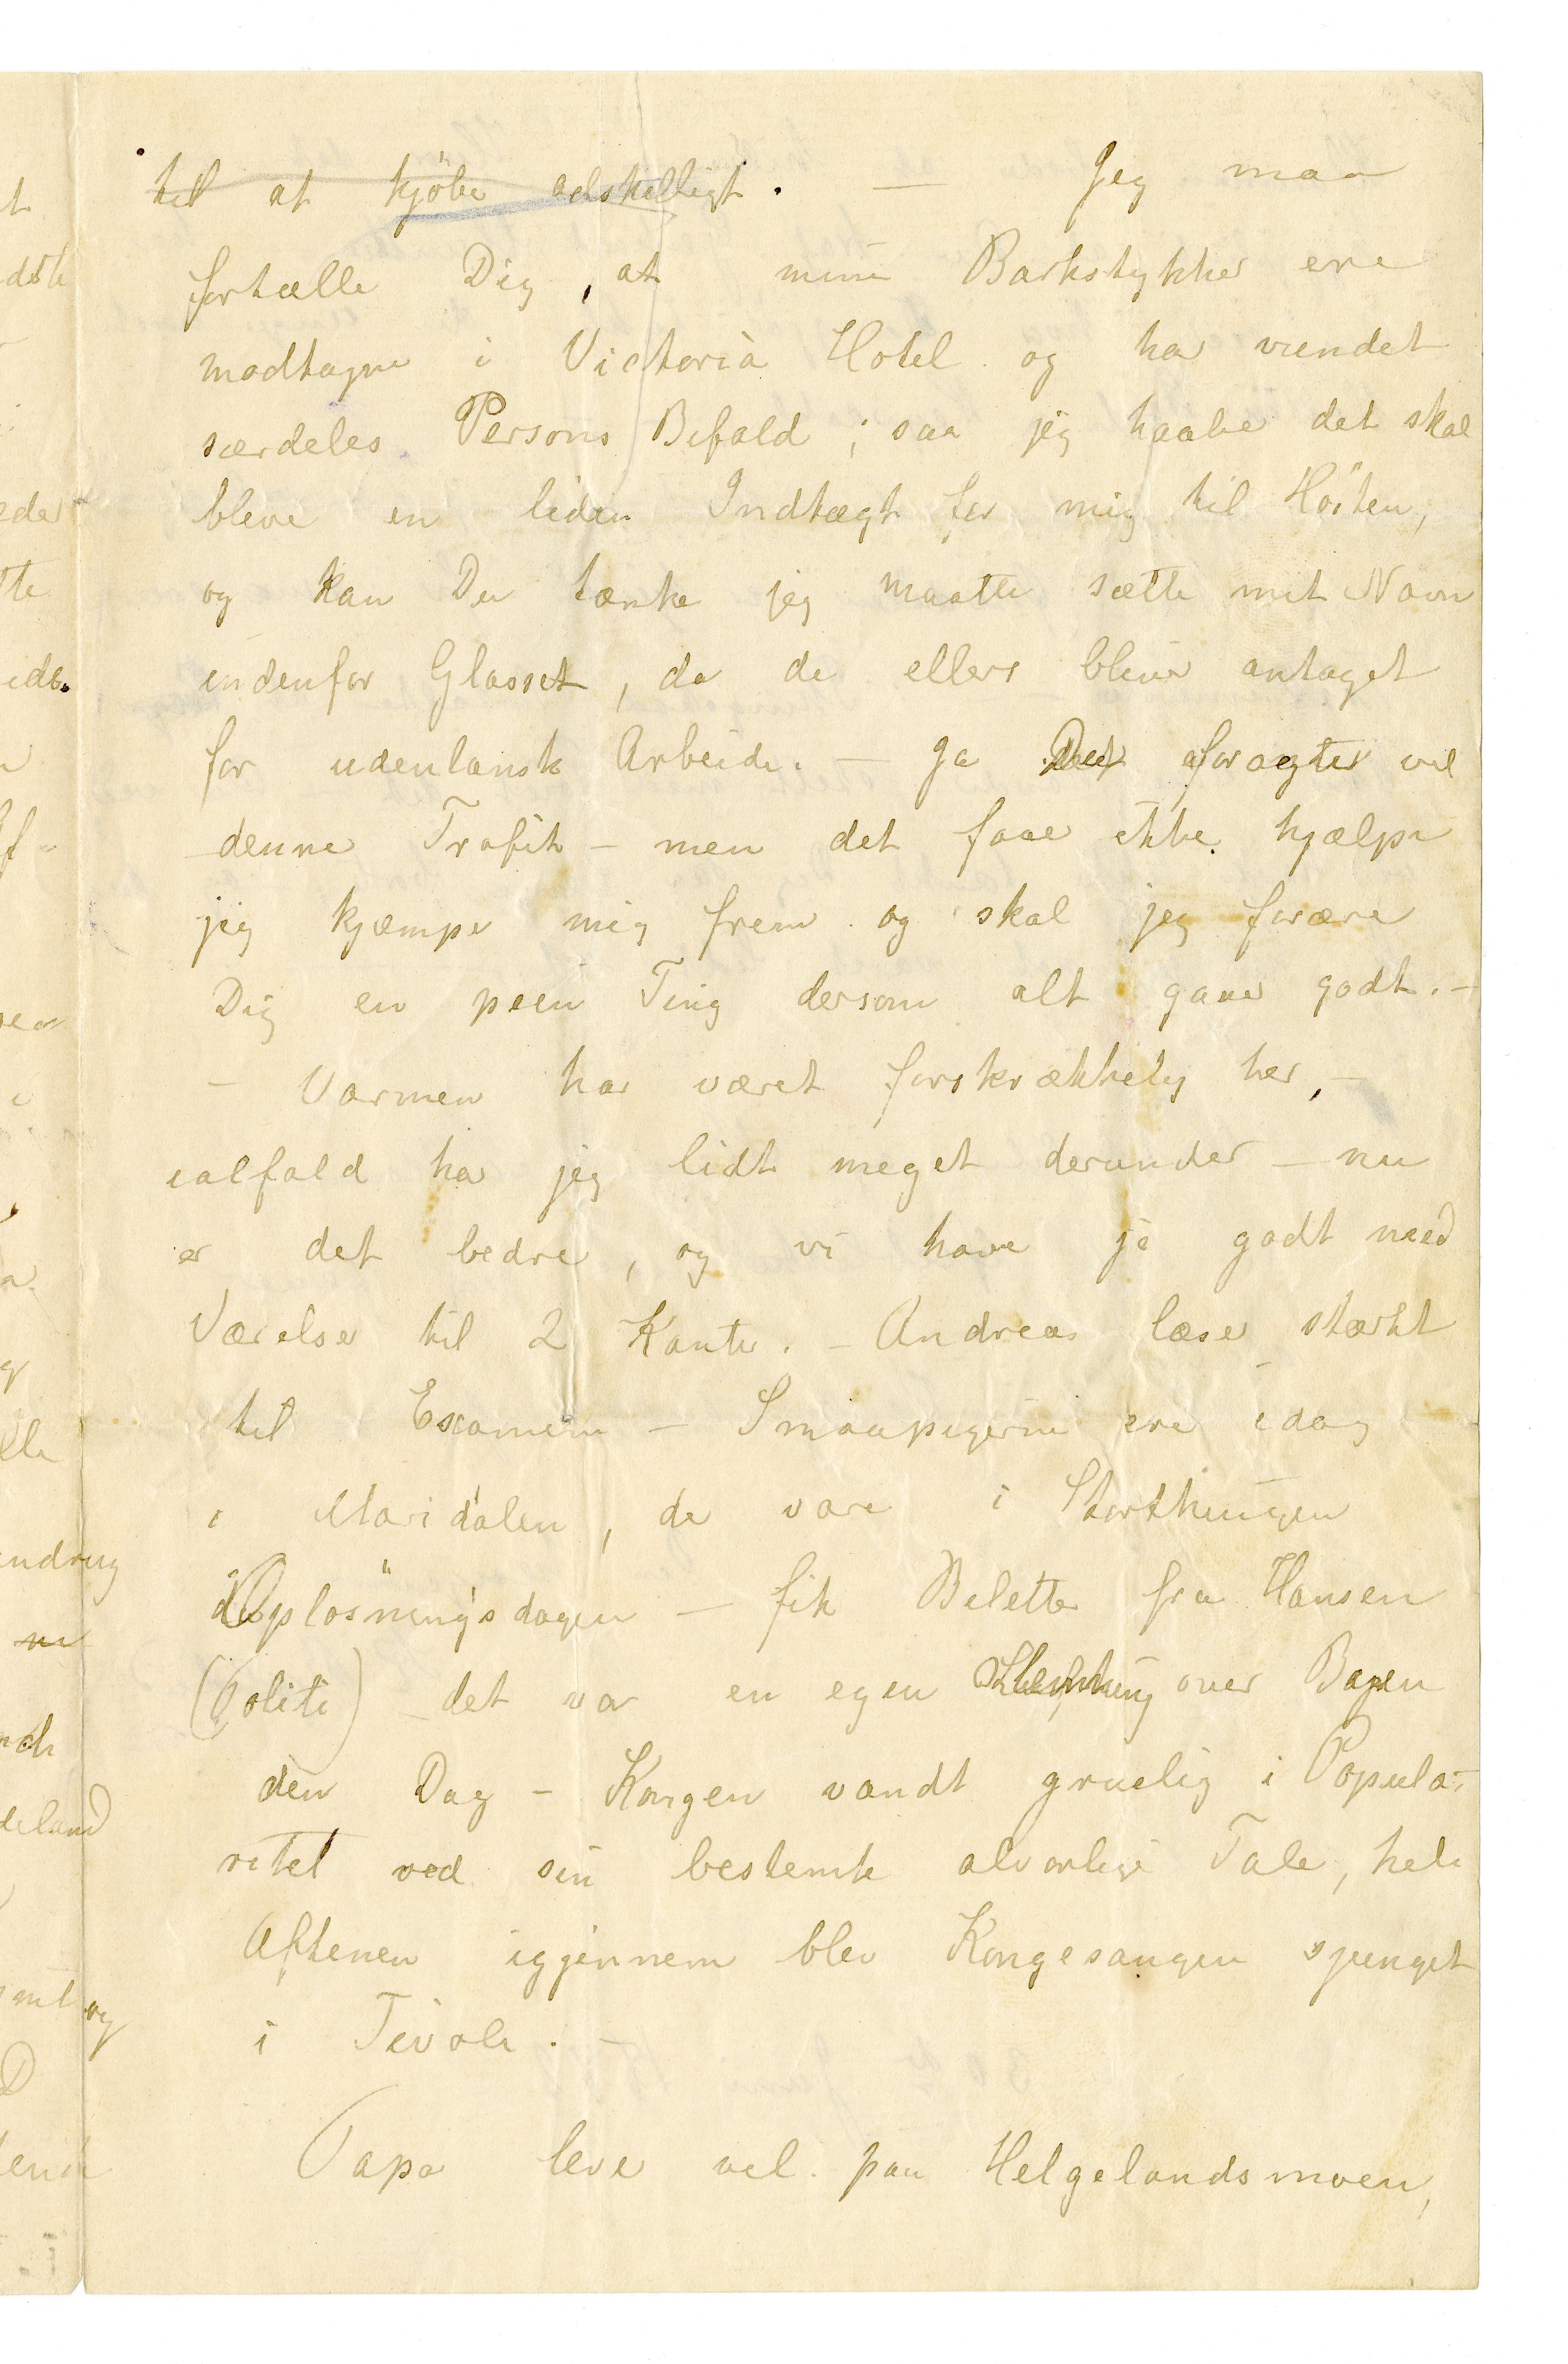 til at kjöbe adskelligt. — Jeg maa
fortælle Dig, at mine Barkstykker ere
modtagne i Victoria Hotel og har vundet
særdeles Persons Bifald; saa jeg haaber det skal
bleve en liden Indtægt for mig til Hösten,
og kan Du tænke jeg maatte sætte mit Navn
indenfor Glasset, da de ellers bliver antaget
for udenlansk Arbeide. — Ja foragter vel
denne Trafik — men det faaer ikke hjælpe
jeg kjæmper mig frem og skal jeg forære
Dig en peen Ting dersom alt gaaer godt. —
— Varmen har været forskrækkelig her, —
ialfald har jeg lidt meget derunder — nu
er det bedre, og vi have jo godt med
Værelser til 2 Kanter. — Andreas læser stærkt
til Examen — Smaapigerne ere idag
i Maridalen, de vare i Storthingen
Oplösningsdagen — fik Beletter fra Hansen
(Politi) — det var en egen over Byen
den Dag — Kongen vandt gruelig i Popula-
ritet ved sin bestemte alvorlige Tale, hele
Aftenen iggjennem blev Kongesangen sjunget
i Tivoli. —
Papa lever vel paa Helgelandsmoen,